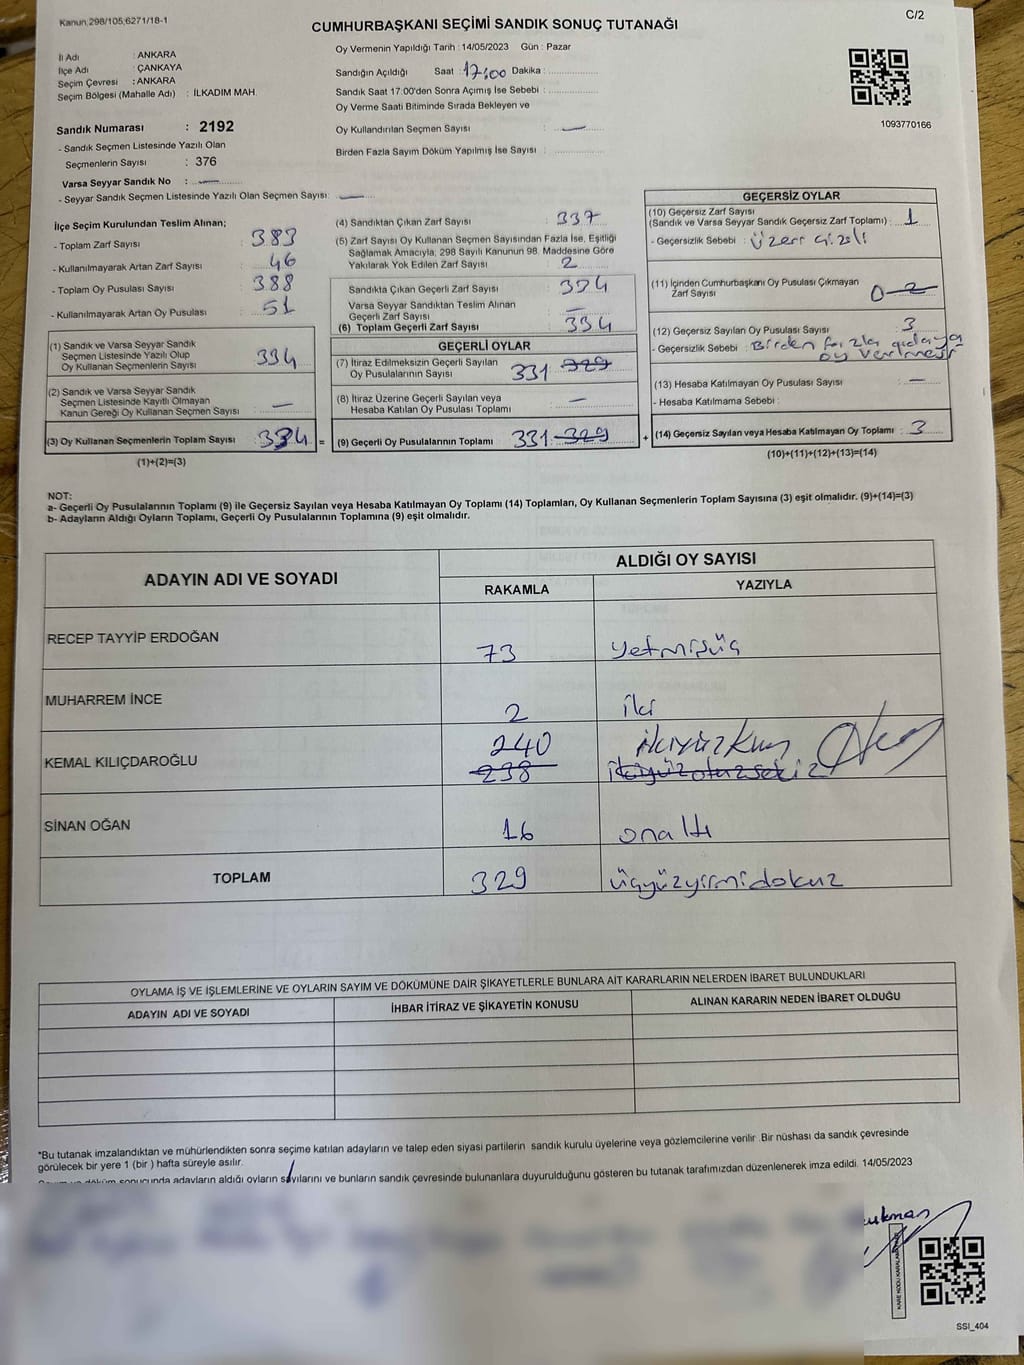 Kanun;298/105;6271/18-1
C/2
CUMHURBAŞKANI SEÇİMİ SANDIK SONUÇ TUTANAĞI
İl Adı : ANKARA
İlçe Adı : ÇANKAYA
Seçim Çevresi : ANKARA
Seçim Bölgesi (Mahalle Adı) : İLKADIM MAH.
Sandık Numarası : 2192
- Sandık Seçmen Listesinde Yazılı Olan
Seçmenlerin Sayısı : 376
Varsa Seyyar Sandık No : —
- Seyyar Sandık Seçmen Listesinde Yazılı Olan Seçmen Sayısı: —
Oy Vermenin Yapıldığı Tarih : 14/05/2023 Gün : Pazar
Sandığın Açıldığı Saat : 17:00 Dakika :
Sandık Saat 17:00'den Sonra Açımış İse Sebebi :
Oy Verme Saati Bitiminde Sırada Bekleyen ve
Oy Kullandırılan Seçmen Sayısı : —
Birden Fazla Sayım Döküm Yapılmış İse Sayısı :
1093770166
İlçe Seçim Kurulundan Teslim Alınan;
- Toplam Zarf Sayısı : 383
- Kullanılmayarak Artan Zarf Sayısı : 46
- Toplam Oy Pusulası Sayısı : 388
- Kullanılmayarak Artan Oy Pusulası : 51
(1) Sandık ve Varsa Seyyar Sandık
Seçmen Listesinde Yazılı Olup
Oy Kullanan Seçmenlerin Sayısı : 334
(2) Sandık ve Varsa Seyyar Sandık
Seçmen Listesinde Kayıtlı Olmayan
Kanun Gereği Oy Kullanan Seçmen Sayısı : —
(3) Oy Kullanan Seçmenlerin Toplam Sayısı : 334 =
(1)+(2)=(3)
(4) Sandıktan Çıkan Zarf Sayısı : 337
(5) Zarf Sayısı Oy Kullanan Seçmen Sayısından Fazla İse, Eşitliği
Sağlamak Amacıyla, 298 Sayılı Kanunun 98. Maddesine Göre
Yakılarak Yok Edilen Zarf Sayısı : 2
Sandıkta Çıkan Geçerli Zarf Sayısı : 334
Varsa Seyyar Sandıktan Teslim Alınan
Geçerli Zarf Sayısı : —
(6) Toplam Geçerli Zarf Sayısı : 334
GEÇERLİ OYLAR
(7) İtiraz Edilmeksizin Geçerli Sayılan
Oy Pusulalarının Sayısı 331 329
(8) İtiraz Üzerine Geçerli Sayılan veya
Hesaba Katılan Oy Pusulası Toplamı : —
(9) Geçerli Oy Pusulalarının Toplamı 331 329 +
GEÇERSİZ OYLAR
(10) Geçersiz Zarf Sayısı
(Sandık ve Varsa Seyyar Sandık Geçersiz Zarf Toplamı) : 1
- Geçersizlik Sebebi : üzeri çizili
(11) İçinden Cumhurbaşkanı Oy Pusulası Çıkmayan
Zarf Sayısı 0 2
(12) Geçersiz Sayılan Oy Pusulası Sayısı : 3
- Geçersizlik Sebebi : Birden fazla adaya
oy verilmesi
(13) Hesaba Katılmayan Oy Pusulası Sayısı : —
- Hesaba Katılmama Sebebi :
(14) Geçersiz Sayılan veya Hesaba Katılmayan Oy Toplamı : 3
(10)+(11)+(12)+(13)=(14)
NOT:
a- Geçerli Oy Pusulalarının Toplamı (9) ile Geçersiz Sayılan veya Hesaba Katılmayan Oy Toplamı (14) Toplamları, Oy Kullanan Seçmenlerin Toplam Sayısına (3) eşit olmalıdır. (9)+(14)=(3)
b- Adayların Aldığı Oyların Toplamı, Geçerli Oy Pusulalarının Toplamına (9) eşit olmalıdır.
ADAYIN ADI VE SOYADI
ALDIĞI OY SAYISI
RAKAMLA YAZIYLA
RECEP TAYYİP ERDOĞAN 73 yetmişüç
MUHARREM İNCE 2 iki
KEMAL KILIÇDAROĞLU 240 ikiyüzkırk
238 ikiyüzotuzsekiz
SİNAN OĞAN 16 onaltı
TOPLAM 329 üçyüzyirmidokuz
OYLAMA İŞ VE İŞLEMLERİNE VE OYLARIN SAYIM VE DÖKÜMÜNE DAİR ŞİKAYETLERLE BUNLARA AİT KARARLARIN NELERDEN İBARET BULUNDUKLARI
ADAYIN ADI VE SOYADI İHBAR İTİRAZ VE ŞİKAYETİN KONUSU ALINAN KARARIN NEDEN İBARET OLDUĞU
*Bu tutanak imzalandıktan ve mühürlendikten sonra seçime katılan adayların ve talep eden siyasi partilerin sandık kurulu üyelerine veya gözlemcilerine verilir. Bir nüshası da sandık çevresinde
görülecek bir yere 1 (bir ) hafta süreyle asılır.
Sayım ve döküm sonucunda adayların aldığı oyların sayılarını ve bunların sandık çevresinde bulunanlara duyurulduğunu gösteren bu tutanak tarafımızdan düzenlenerek imza edildi. 14/05/2023
SSI_404